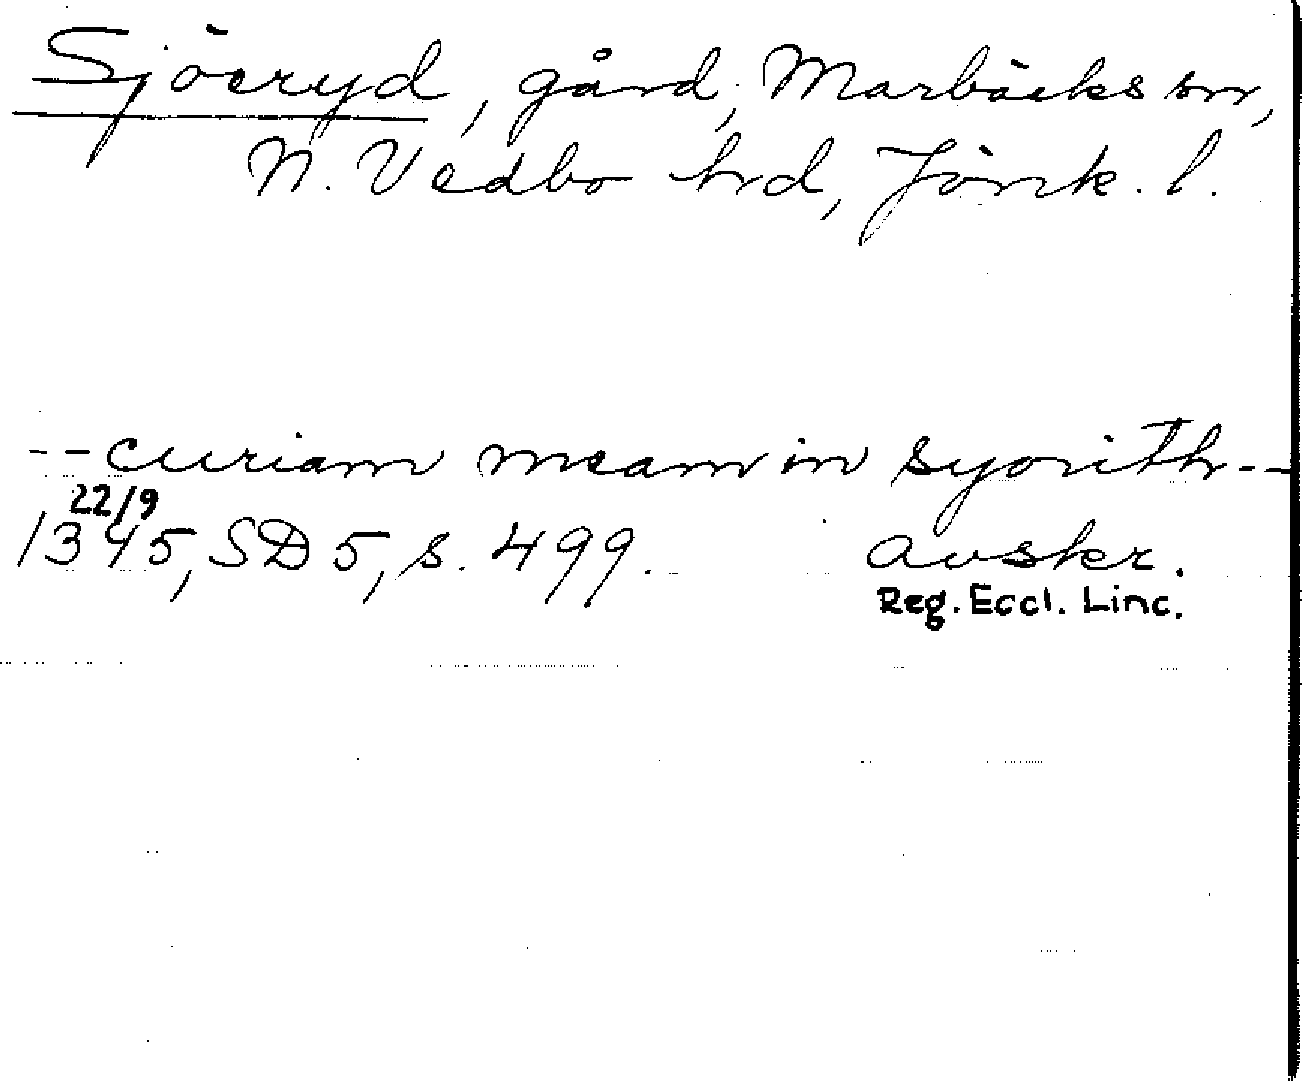 Sjöeryd, gård, Marbäcks sn,
N. Vedbo hrd, Jönk. l.
-- curiam meam in syorith --
22/9
1345, SD 5, s. 499. avskr.
Reg. Eccl. Linc.